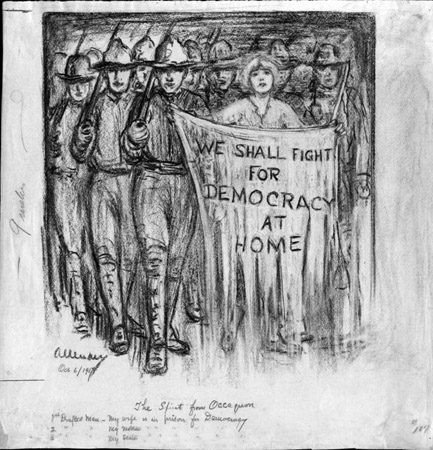 WE SHALL FIGHT
FOR
DEMOCRACY
AT
HOME
Oct 6/191
The Spirit from Occoquan
1st Drafted Man - My wife is in prison for Democracy
2 " " My Mother
3 " " My Sister